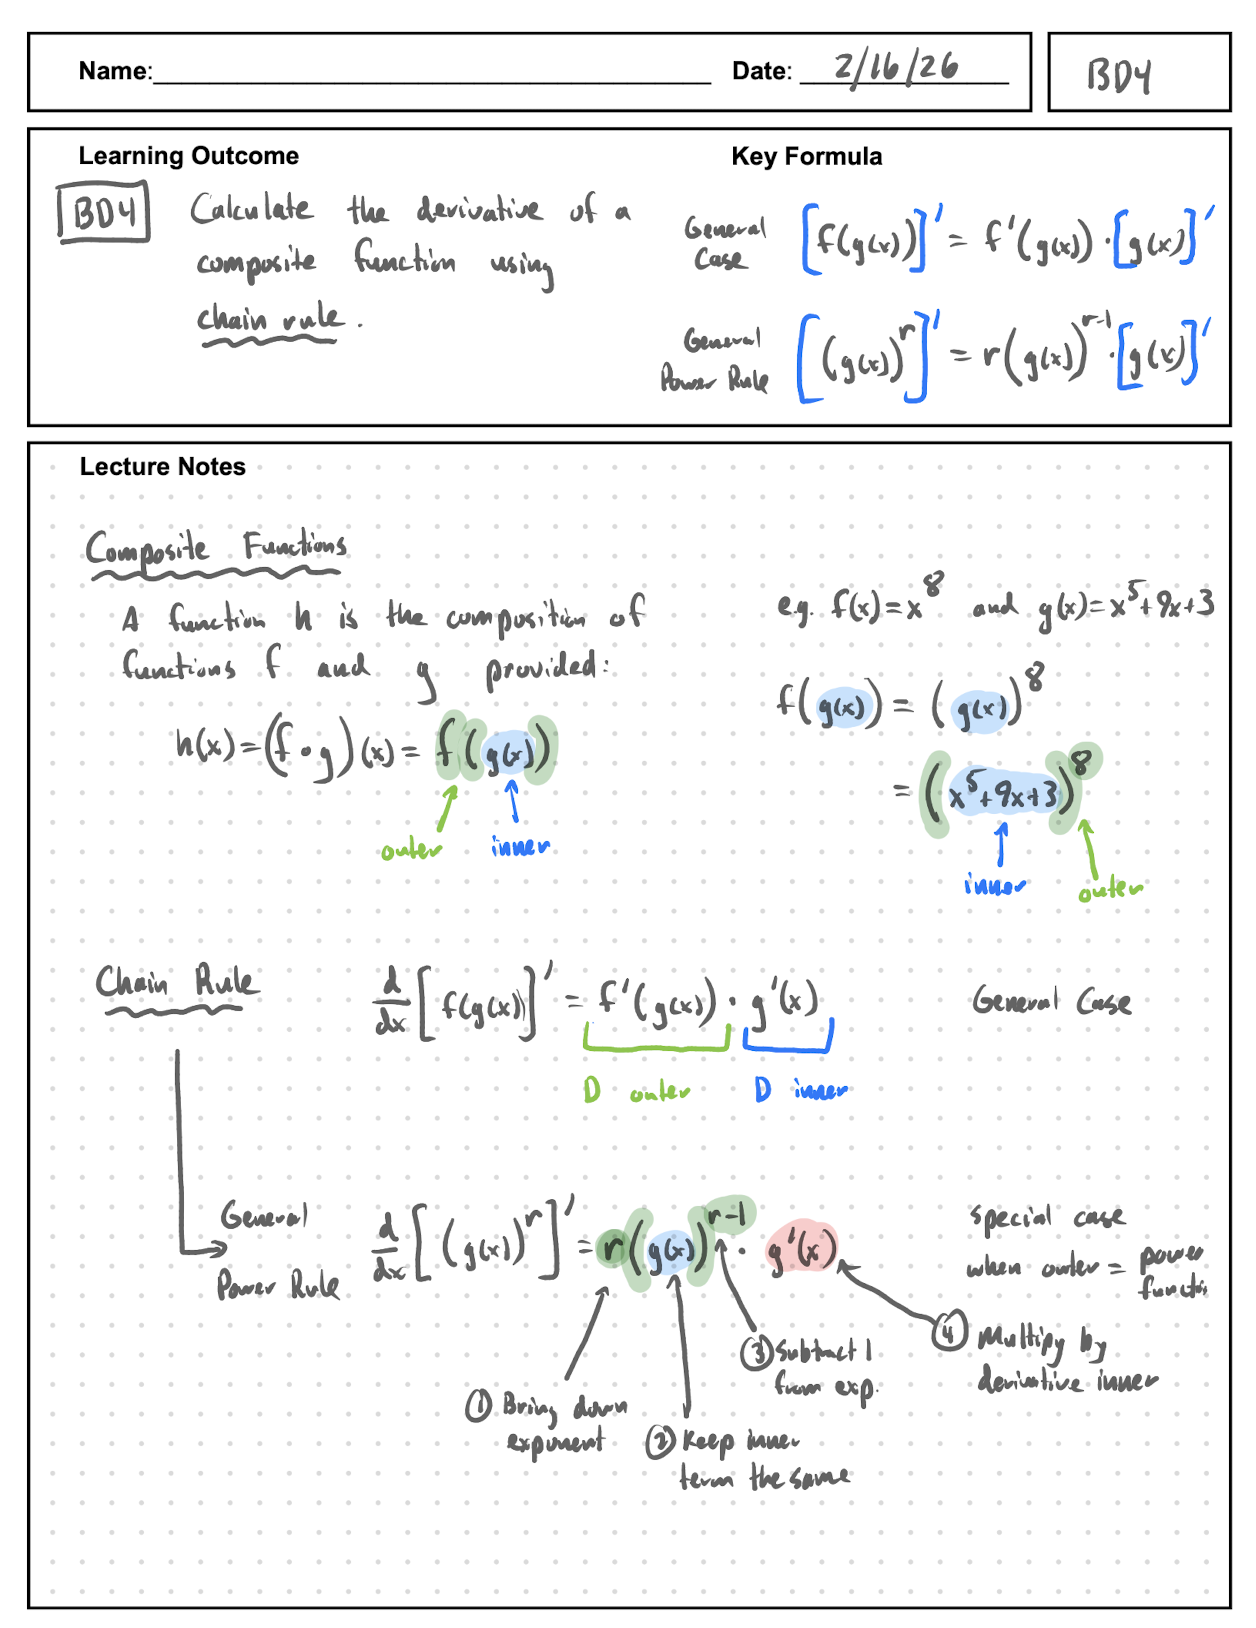 Name: Date: 2/16/26 BD4
Learning Outcome
BD4 Calculate the derivative of a
composite function using
chain rule.
Key Formula
General
Case
[f(g(x))]' = f'(g(x)) · [g(x)]'
General
Power Rule
[(g(x))^r]' = r(g(x))^(r-1) · [g(x)]'
Lecture Notes
Composite Functions
A function h is the composition of
functions f and g provided:
h(x) = (f ∘ g)(x) = f(g(x))
outer inner
e.g. f(x) = x^8 and g(x) = x^5 + 9x + 3
f(g(x)) = (g(x))^8
= (x^5 + 9x + 3)^8
inner outer
Chain Rule
d/dx [f(g(x))]' = f'(g(x)) · g'(x)
General Case
D outer D inner
General
Power Rule
d/dx [(g(x))^r]' = r(g(x))^(r-1) · g'(x)
special case
when outer = power
functio
① Bring down
exponent
② Keep inner
term the same
③ Subtract 1
from exp.
④ Multipy by
derivative inner